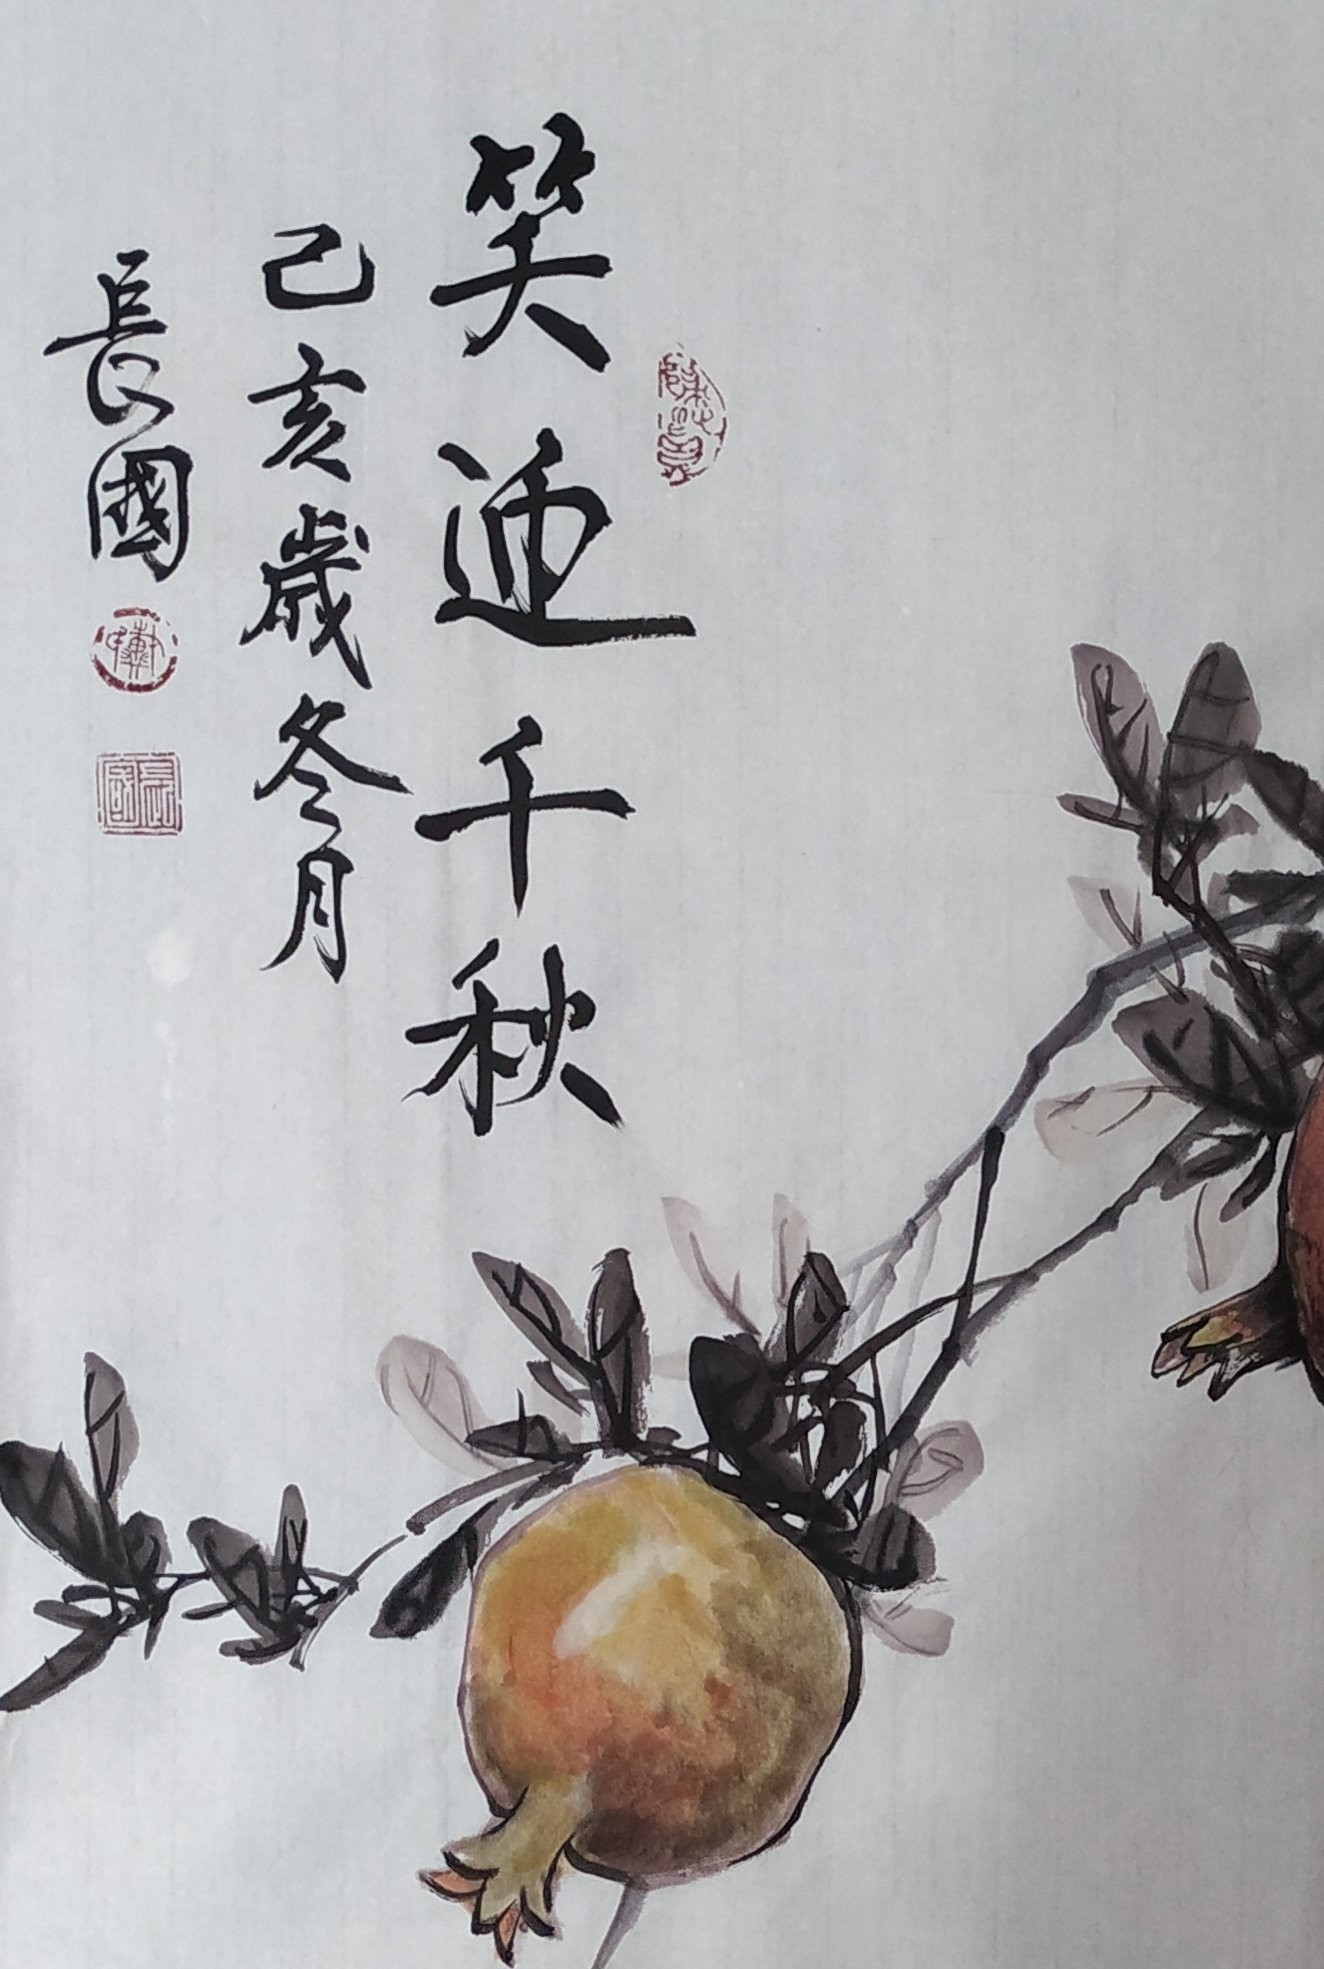 笑迎千秋
己亥歲冬月
長國
長國